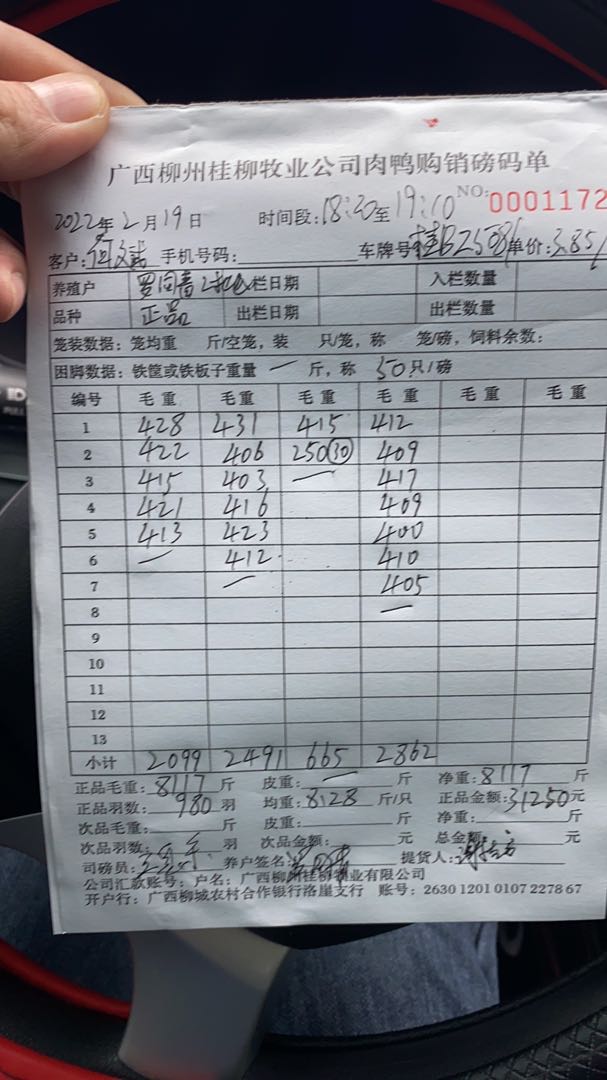 广西柳州桂柳牧业公司肉鸭购销磅码单
2022年2月19日 时间段:18:20至19:10 NO: 0001172
客户: 手机号码: 车牌号 单价:3.85/
养殖户 罗同春 入栏日期 入栏数量
品种 正品 出栏日期 出栏数量
笼装数据:笼均重 斤/空笼,装 只/笼,称 笼/磅,饲料余数:
困脚数据:铁筐或铁板子重量 一 斤,称 50只/磅
编号 毛重 毛重 毛重 毛重 毛重 毛重
1 428 431 415 412
2 422 406 250(30) 409
3 415 403 — 417
4 421 416 409
5 413 423 400
6 — 412 410
7 — 405
8 —
9
10
11
12
13
小计 2099 2491 665 2862
正品毛重:8117斤 皮重:—斤 净重:8117斤
正品羽数:980羽 均重:8.28斤/只 正品金额:31250元
次品毛重:斤 皮重:斤 净重:斤
次品羽数:羽 次品金额:元 总金额:元
司磅员: 养户签名: 提货人:
公司汇款账号:户名:广西柳州桂柳牧业有限公司
开户行:广西柳城农村合作银行洛崖支行 账号:2630 1201 0107 2278 67